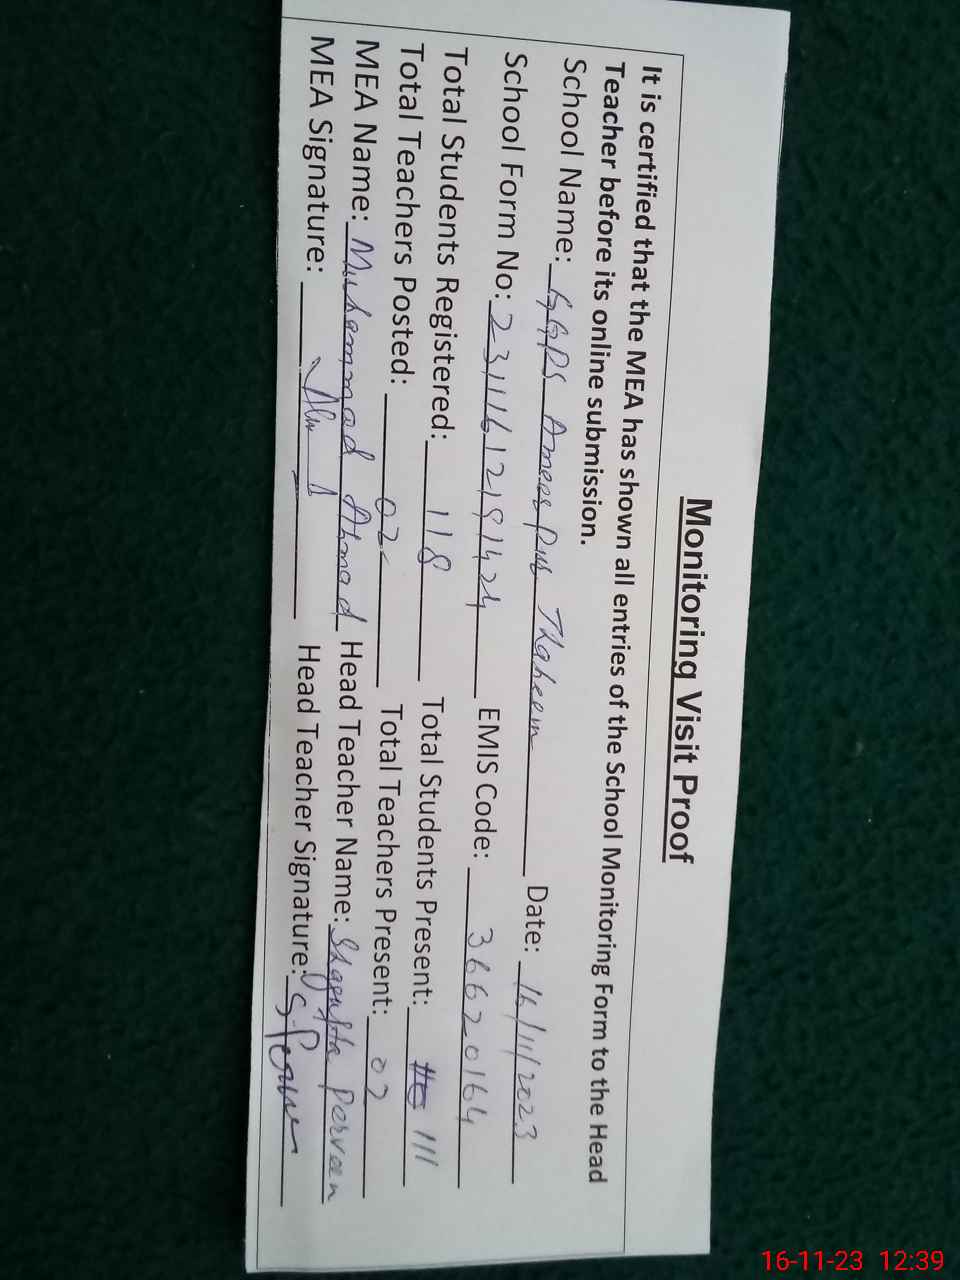 Monitoring Visit Proof
It is certified that the MEA has shown all entries of the School Monitoring Form to the Head
Teacher before its online submission.
School Name: GGPS Ameer Pur Thaheem Date: 16/11/2023
School Form No: 23111612191424 EMIS Code: 36620164
Total Students Registered: 118 Total Students Present: 111
Total Teachers Posted: 02 Total Teachers Present: 02
MEA Name: Muhammad Ahmad Head Teacher Name: Shagufta Parveen
MEA Signature: Head Teacher Signature:
16-11-23 12:39